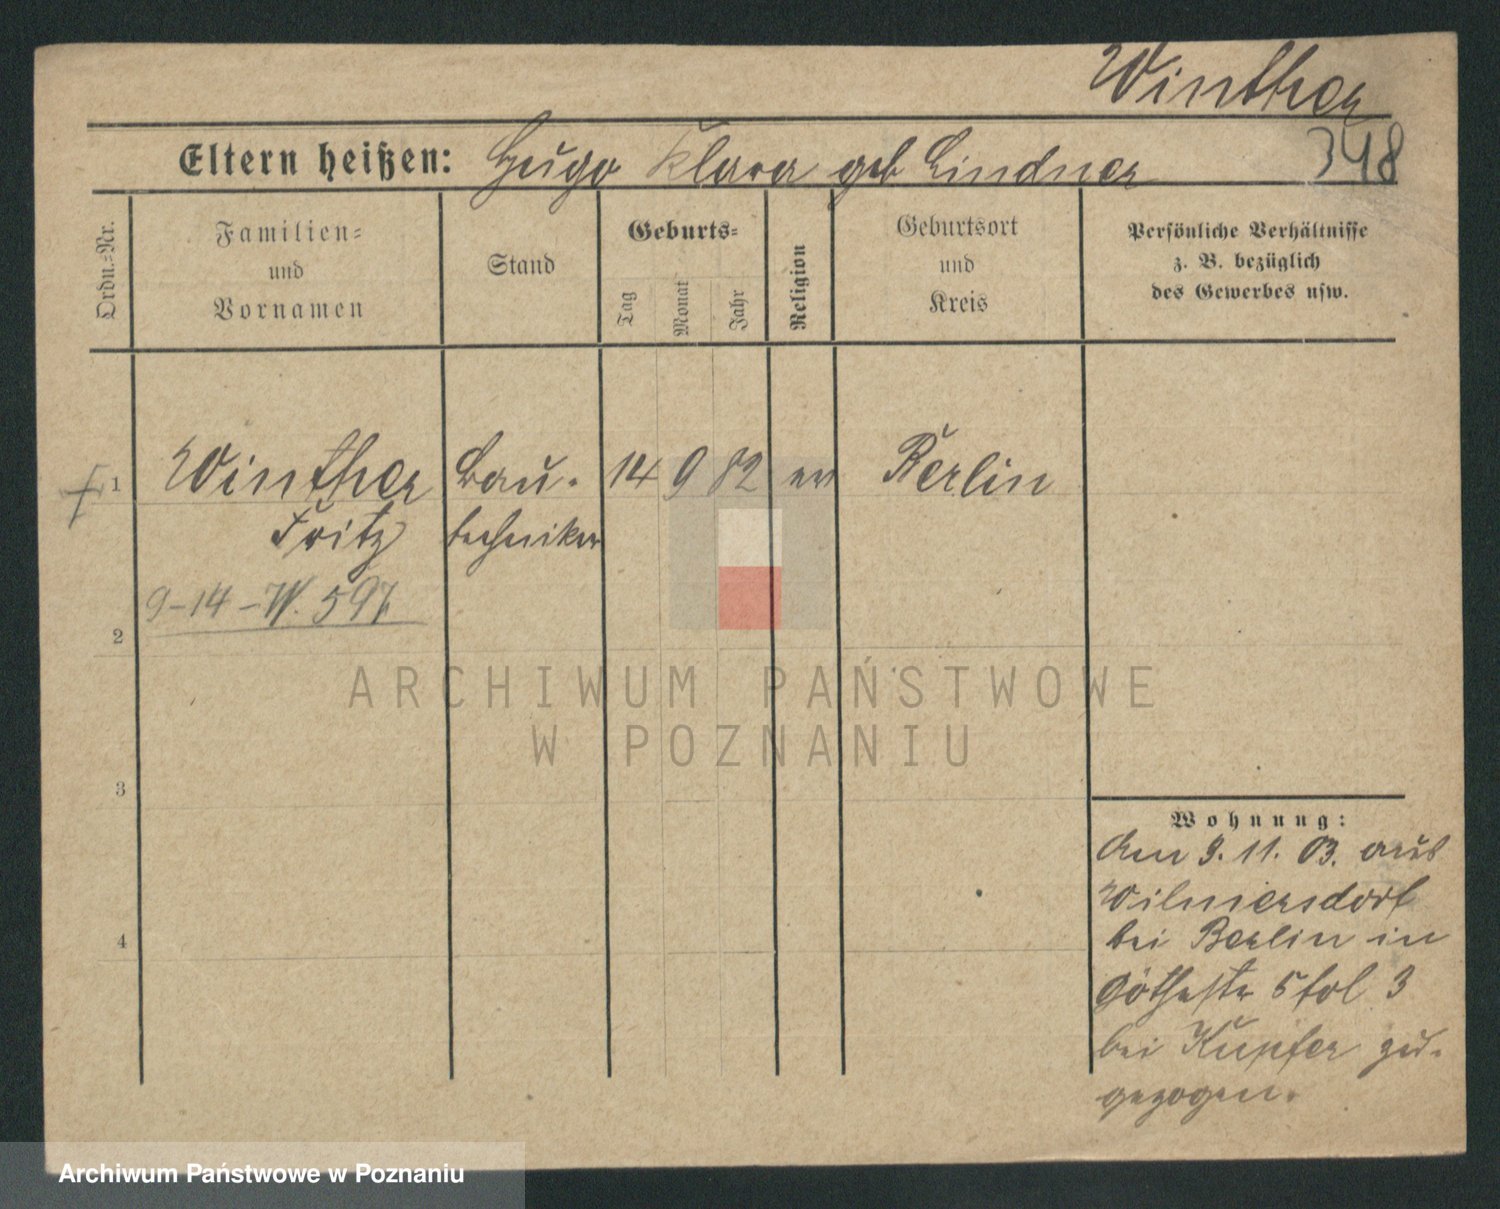 Winther
Eltern heißen: Hugo Klara geb Lindner
348
Ordn.-Nr.
Familien-
und
Vornamen
Stand
Geburts-
Tag
Monat
Jahr
Religion
Geburtsort
und
Kreis
Persönliche Verhältnisse
z. B. bezüglich
des Gewerbes usw.
1 Winther Bau- 14 9 82 ev Berlin
Fritz techniker
9-14-W. 597
2
3
4
Wohnung:
Am 9. 11. 03. aus
Wilmersdorf
bei Berlin in
Göthestr 5 tol 3
bei Kupfer zu-
gezogen.
ARCHIWUM PAŃSTWOWE
W POZNANIU
Archiwum Państwowe w Poznaniu